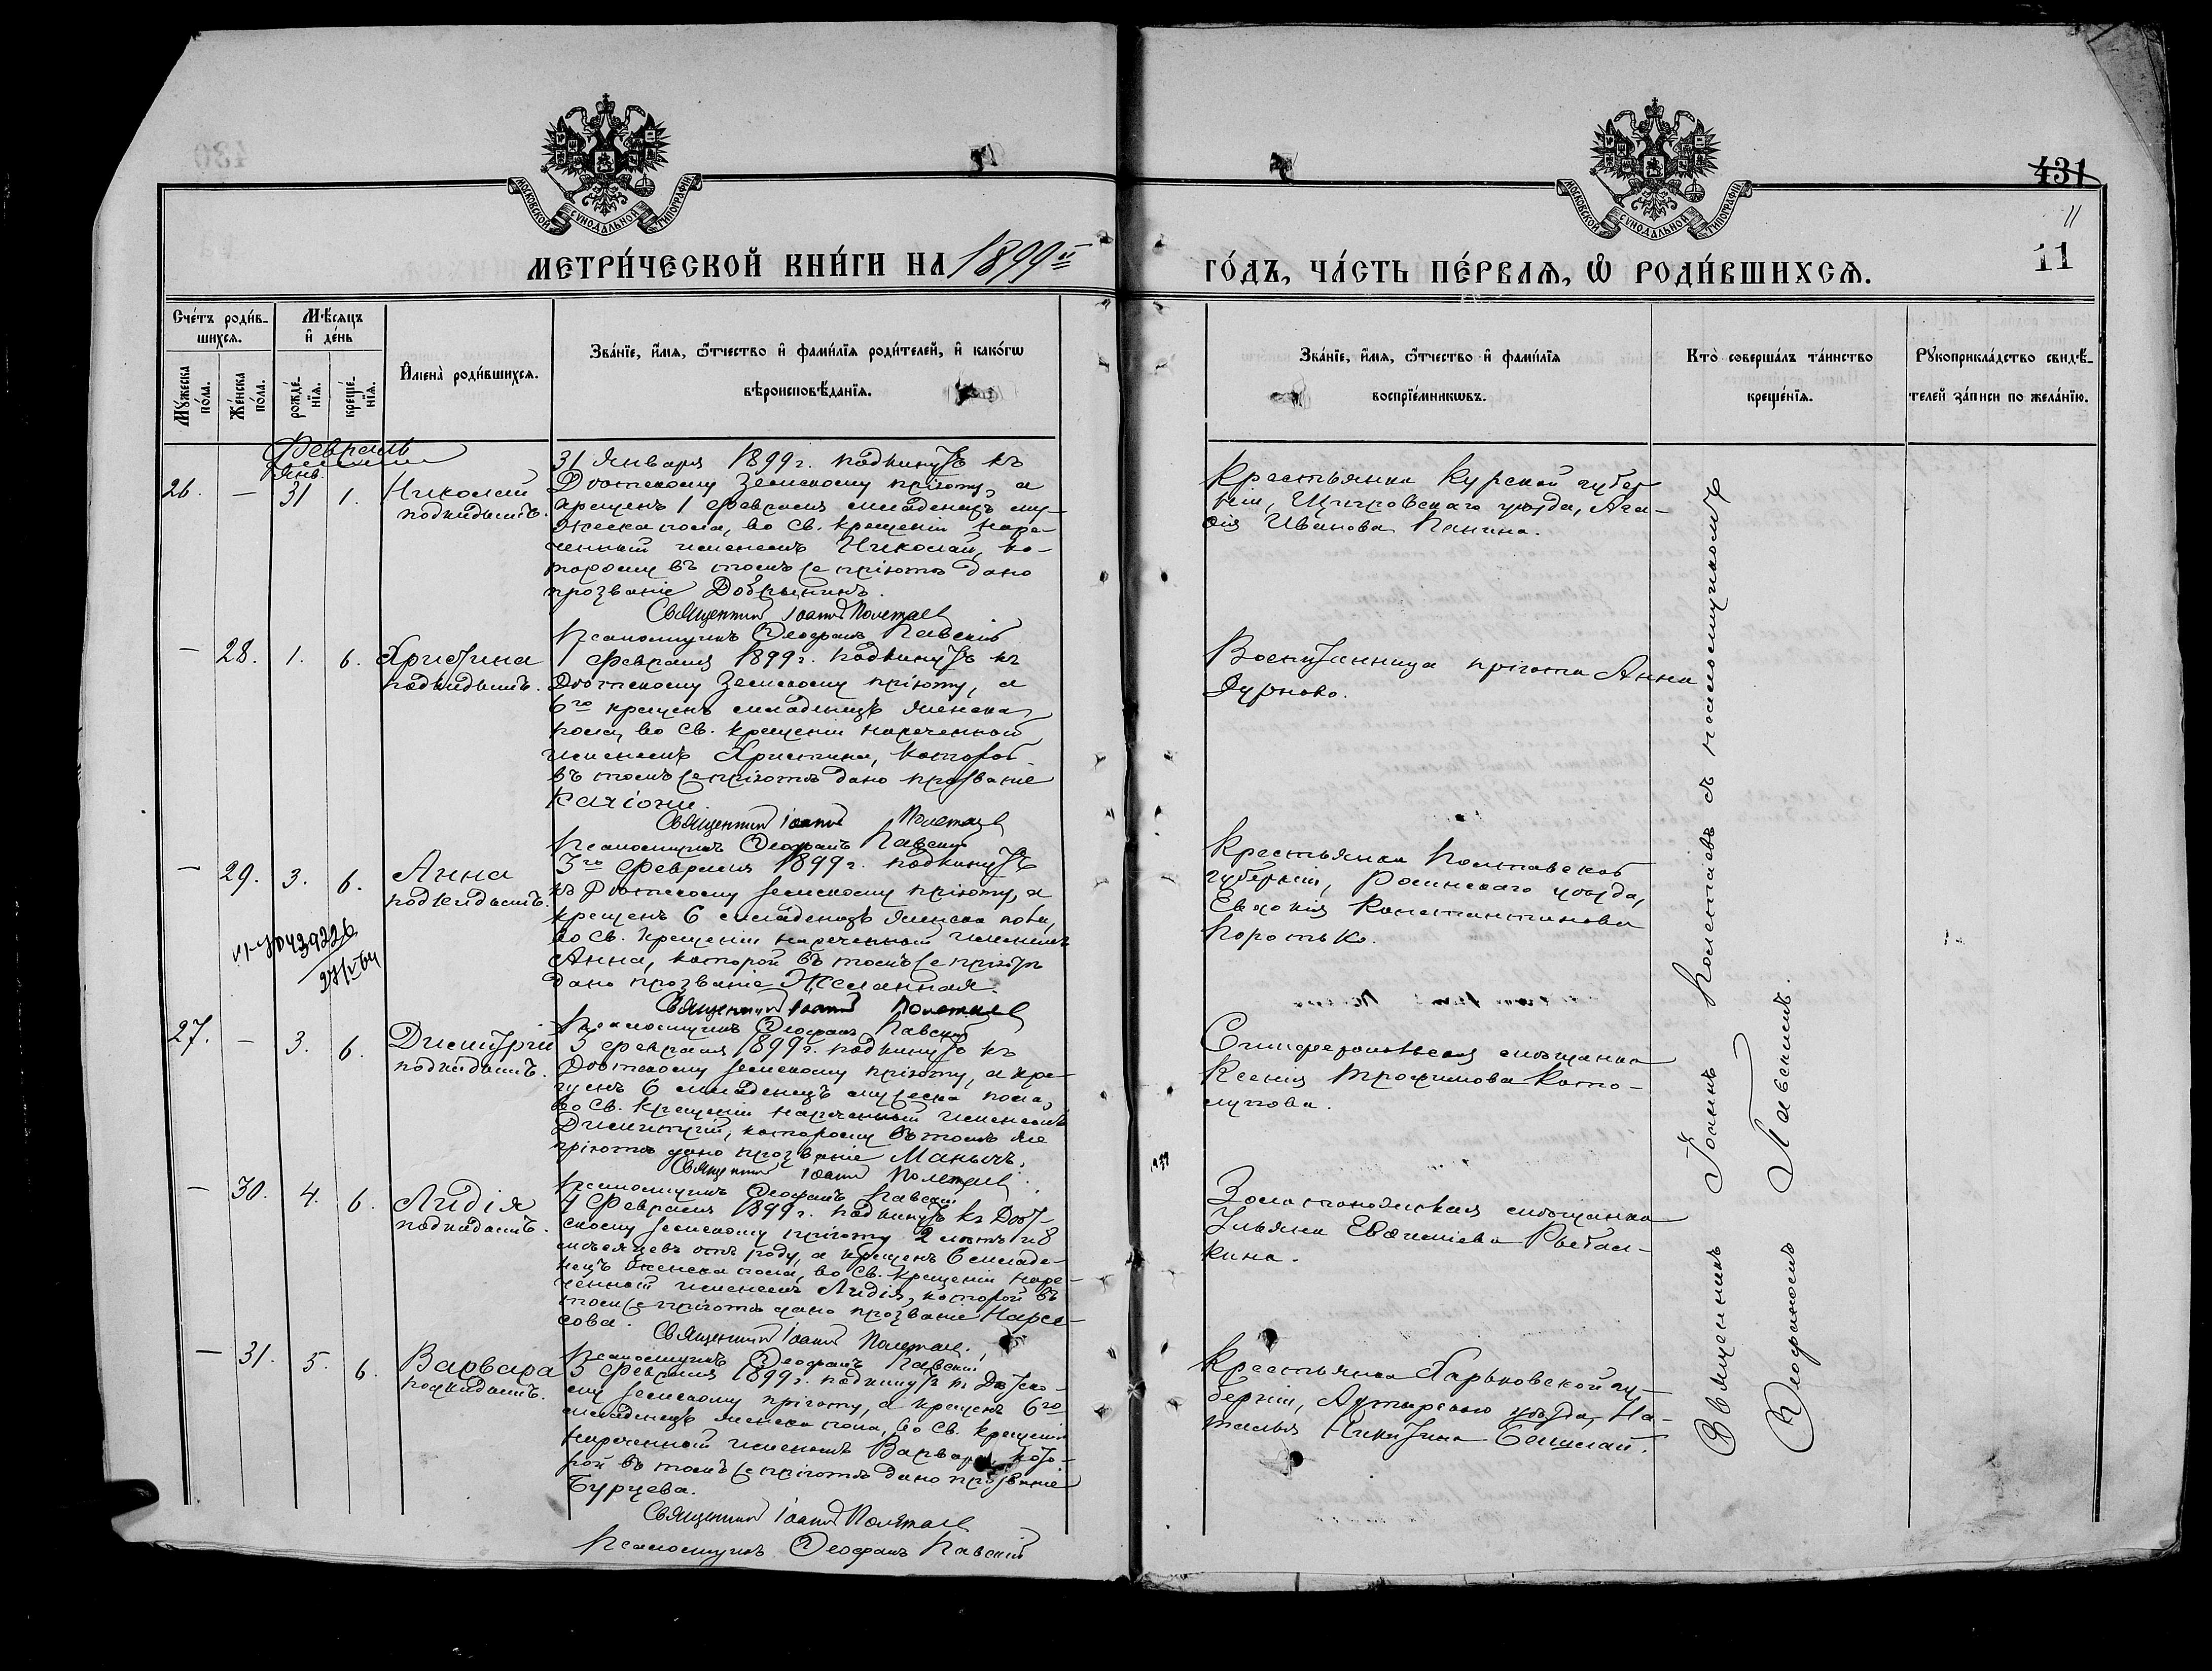 430
431
11
11
МОСКОВСКОЙ СѴНОДАЛЬНОЙ ТИПОГРАФІИ
МОСКОВСКОЙ СѴНОДАЛЬНОЙ ТИПОГРАФІИ
МЕТРИ́ЧЕСКОЙ КНИ́ГИ НА 1899й
ГО́ДЪ, ЧА́СТЬ ПЕ́РВАѦ, Ѽ РОДИ́ВШИХСѦ.
Сче́тъ роди́в-
шихсѧ.
Мѣ́сѧцъ
и҆ де́нь
Мꙋ́жеска по́ла.
Же́нска по́ла.
рожде́-нїѧ.
креще́-нїѧ.
И҆мена̀ роди́вшихсѧ.
Зва́нїе, и҆́мѧ, ѻ҆́тчество и҆ фами́лїѧ роди́телей, и҆ како́гѡ
вѣроисповѣ́данїѧ.
Зва́нїе, и҆́мѧ, ѻ҆́тчество и҆ фами́лїѧ
воспрїе́мникѡвъ.
Кто̀ соверша́лъ та́инство
креще́нїѧ.
Рꙋкоприкла́дство свидѣ́-
телей за́писи по жела́нїю.
Февраль
Янв.
26. — 31 1. Николай
подкидышъ.
31 Января 1899 г. подкинутъ къ
Дѣтскому Земскому пріюту, а
крещенъ 1 Февраля младенецъ му-
жеска пола, во Св. Крещеніи наре-
ченный именемъ Николай, ко-
торому въ томъ же пріютѣ дано
прозваніе Добрынинъ.
Священникъ Іоаннъ Полетаев
Псаломщикъ Ѳеофанъ Павскій
Крестьянка Курской губер-
ніи, Щигровскаго уѣзда, Ага-
фія Иванова Панина.
— 28. 1. 6. Христина
подкидышъ.
1 Февраля 1899 г. подкинутъ къ
Дѣтскому Земскому пріюту, а
6го крещенъ младенецъ женска
пола, во Св. Крещеніи нареченный
именемъ Христина, которой
въ томъ же пріютѣ дано прозваніе
Священникъ Іоаннъ Полетаев
Псаломщикъ Ѳеофанъ Павскій
Воспитанница пріюта Анна
Дурново.
— 29. 3. 6. Анна
подкидышъ.
3го Февраля 1899 г. подкинутъ
къ Дѣтскому земскому пріюту, а
крещенъ 6 младенецъ женска пола,
во Св. Крещеніи нареченный именемъ
Анна, которой въ томъ же пріютѣ
дано прозваніе Желанная.
Священникъ Іоаннъ Полетаев
Псаломщикъ Ѳеофанъ Павскій
Крестьянка Полтавской
губерніи, Роменскаго уѣзда,
Евдокія Константинова
Коротько.
27. — 3. 6. Димитрій
подкидышъ.
3 Февраля 1899 г. подкинутъ къ
Дѣтскому земскому пріюту, а кре-
щенъ 6 младенецъ мужеска пола,
во Св. Крещеніи нареченный именемъ
Димитрій, которому въ томъ же
пріютѣ дано прозваніе Манычъ.
Священникъ Іоаннъ Полетаев
Псаломщикъ Ѳеофанъ Павскій
Симферопольская мѣщанка
Ксенія Трофимова Като-
— 30. 4. 6. Лидія
подкидышъ.
4 Февраля 1899 г. подкинутъ къ Дѣт-
скому земскому пріюту 2 лѣтъ и 8
мѣсяцевъ отъ роду, а крещенъ 6 младе-
нецъ женска пола, во Св. Крещеніи наре-
ченный именемъ Лидія, которой въ
томъ же пріютѣ дано прозваніе Нарсе-
сова.
Священникъ Іоаннъ Полетаев
Псаломщикъ Ѳеофанъ Павскій
Золотоношская мѣщанка
Ульяна Евфиміева Рыбал-
кина.
— 31. 5. 6. Варвара
подкидышъ.
5 Февраля 1899 г. подкинутъ къ Дѣтско-
му земскому пріюту, а крещенъ 6го
младенецъ женска пола, во Св. Крещеніи
нареченный именемъ Варвара, кото-
рой въ томъ же пріютѣ дано прозваніе
Бурцева.
Священникъ Іоаннъ Полетаев
Псаломщикъ Ѳеофанъ Павскій
Крестьянка Харьковской гу-
берніи, Ахтырскаго уѣзда, На-
талья Никитина
Священникъ Іоаннъ Полетаевъ съ псаломщикомъ
Ѳеофаномъ Павскимъ.